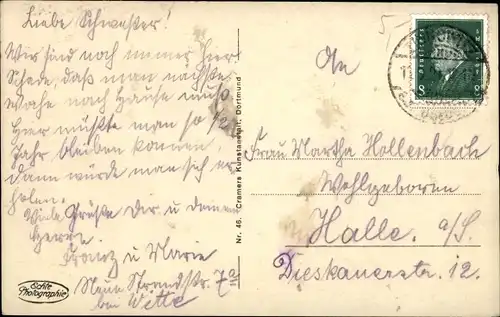 Liebe Schwester!
Wir sind noch immer hier
Schade, daß man nächste
Woche nach Hause muß
Hier müßte man so ein
Jahr bleiben können,
dann würde man sich er
holen.
Viele Grüße dir u deinem
Herrn
Franz u Marie
Neue Strandstr. 7a
bei Witte
Echte
Photographie
Nr. 46. Cramers Kunstanstalt, Dortmund
An
Frau Martha Hollenbach
Wohlgeboren
Halle a/S.
Dieskauerstr. 12.
Deutsches
8 8